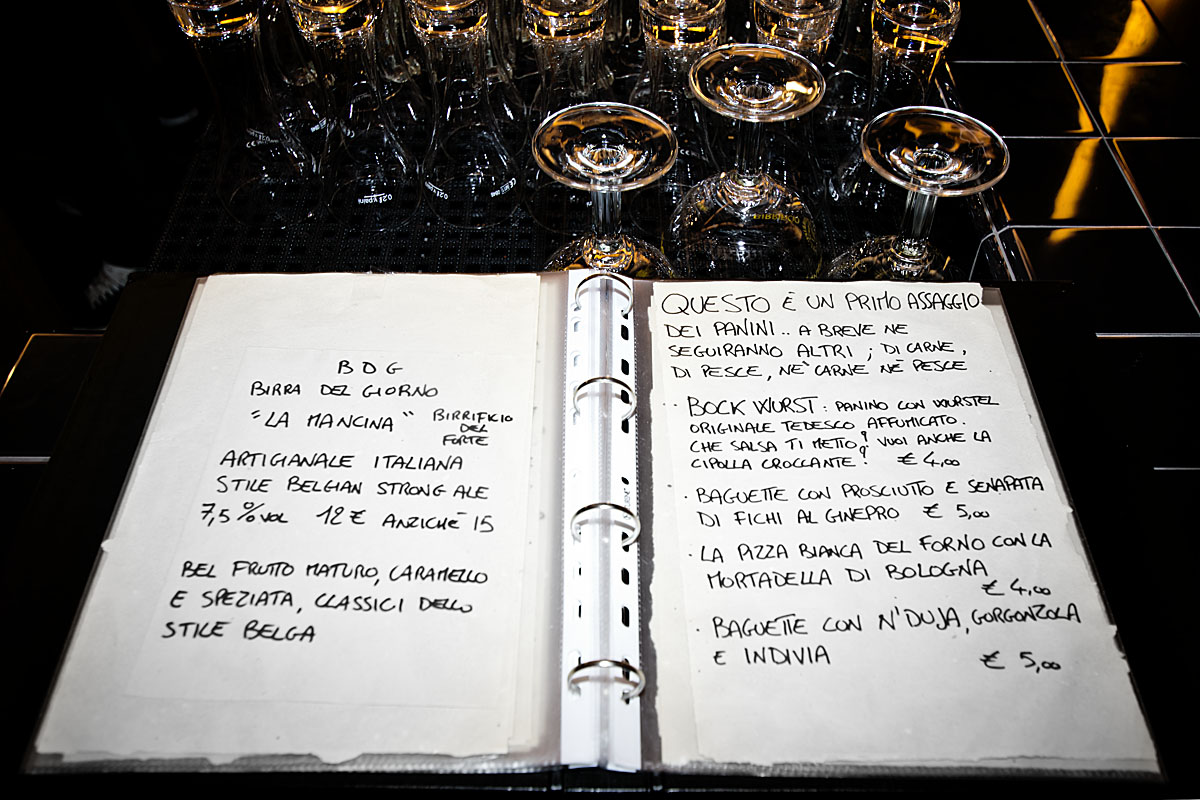 B D G
BIRRA DEL GIORNO
"LA MANCINA" BIRRIFICIO
DEL
FORTE
ARTIGIANALE ITALIANA
STILE BELGIAN STRONG ALE
7,5 % VOL 12 € ANZICHÈ 15
BEL FRUTTO MATURO, CARAMELLO
E SPEZIATA, CLASSICI DELLO
STILE BELGA
QUESTO È UN PRIMO ASSAGGIO
DEI PANINI.. A BREVE NE
SEGUIRANNO ALTRI ; DI CARNE,
DI PESCE, NÈ CARNE NÈ PESCE
· BOCK WURST : PANINO CON WURSTEL
ORIGINALE TEDESCO AFFUMICATO.
CHE SALSA TI METTO? VUOI ANCHE LA
CIPOLLA CROCCANTE? € 4,00
· BAGUETTE CON PROSCIUTTO E SENAPATA
DI FICHI AL GINEPRO € 5,00
· LA PIZZA BIANCA DEL FORNO CON LA
MORTADELLA DI BOLOGNA
€ 4,00
· BAGUETTE CON N'DUJA, GORGONZOLA
E INDIVIA € 5,00